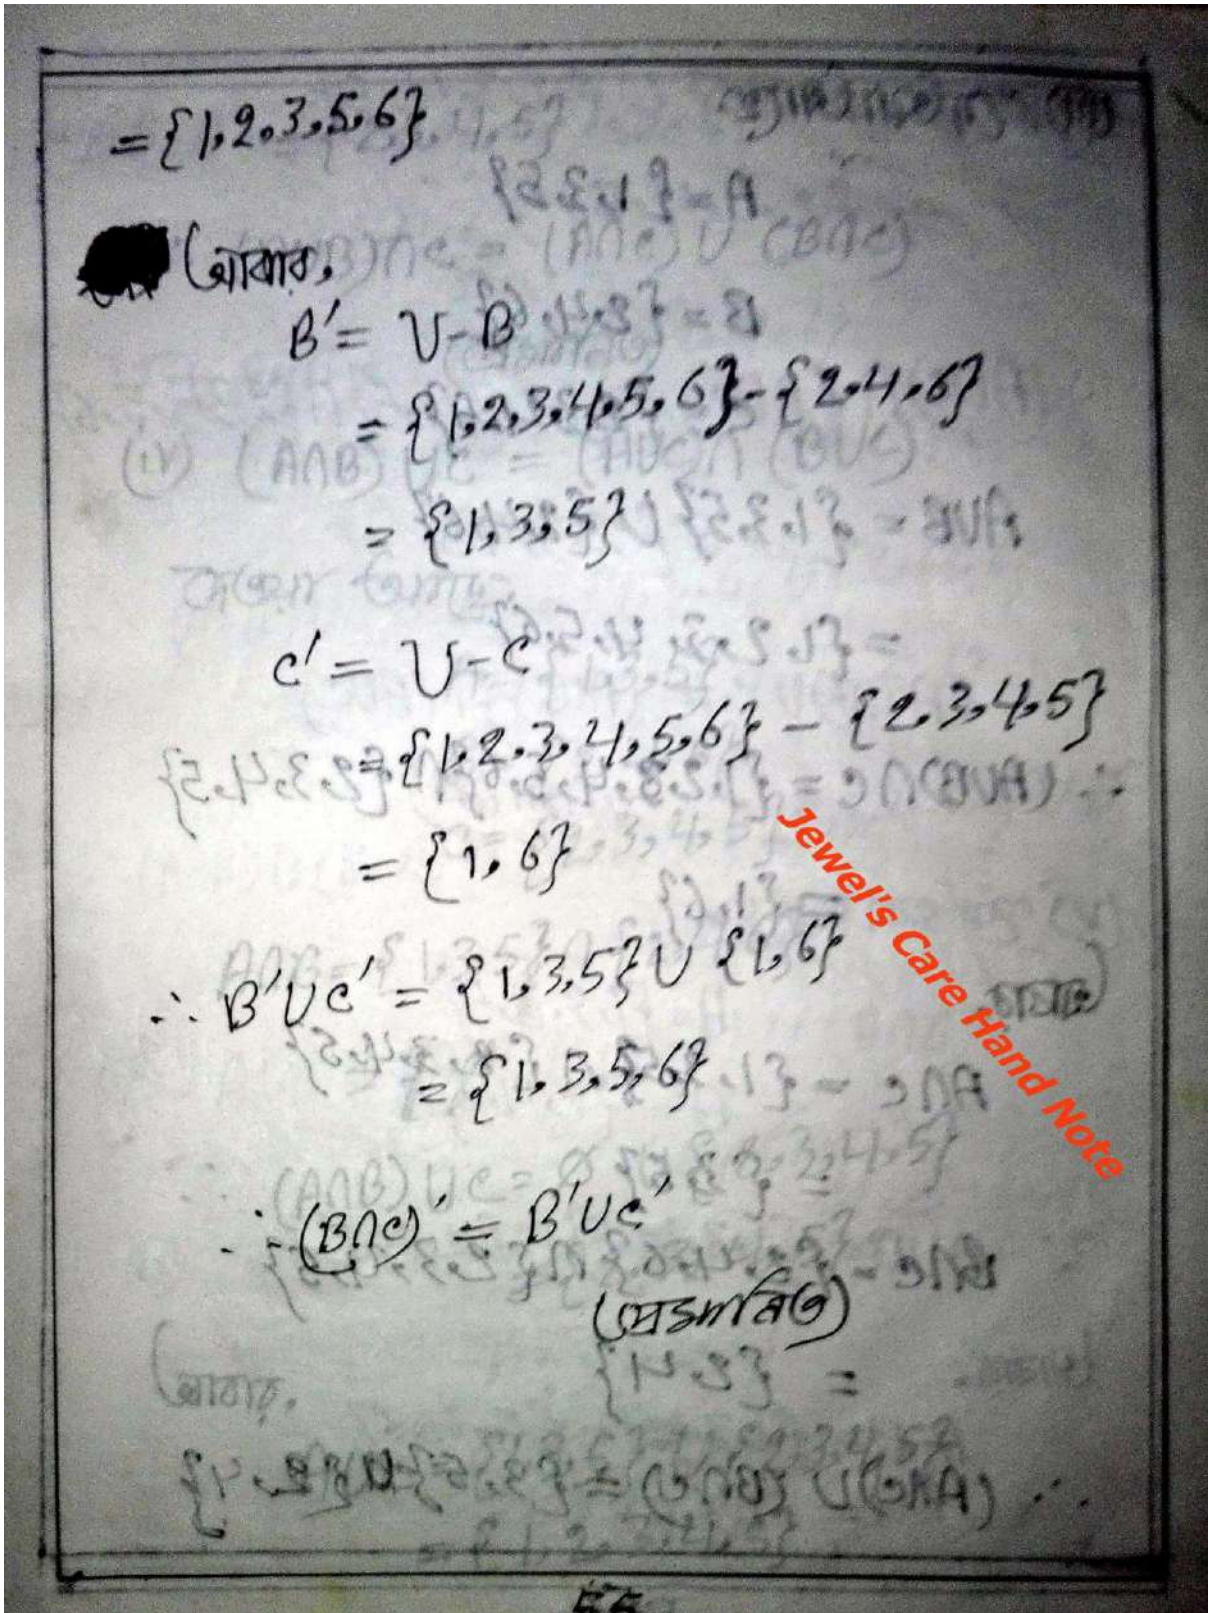 = {1,2,3,5,6}
আবার,
B′ = U - B
= {1,2,3,4,5,6} - {2,4,6}
= {1,3,5}
C′ = U - C
= {1,2,3,4,5,6} - {2,3,4,5}
= {1,6}
∴ B′∪C′ = {1,3,5} ∪ {1,6}
= {1,3,5,6}
∴ (B∩C)′ = B′∪C′
(প্রমাণিত)
Jewel's Care Hand Note